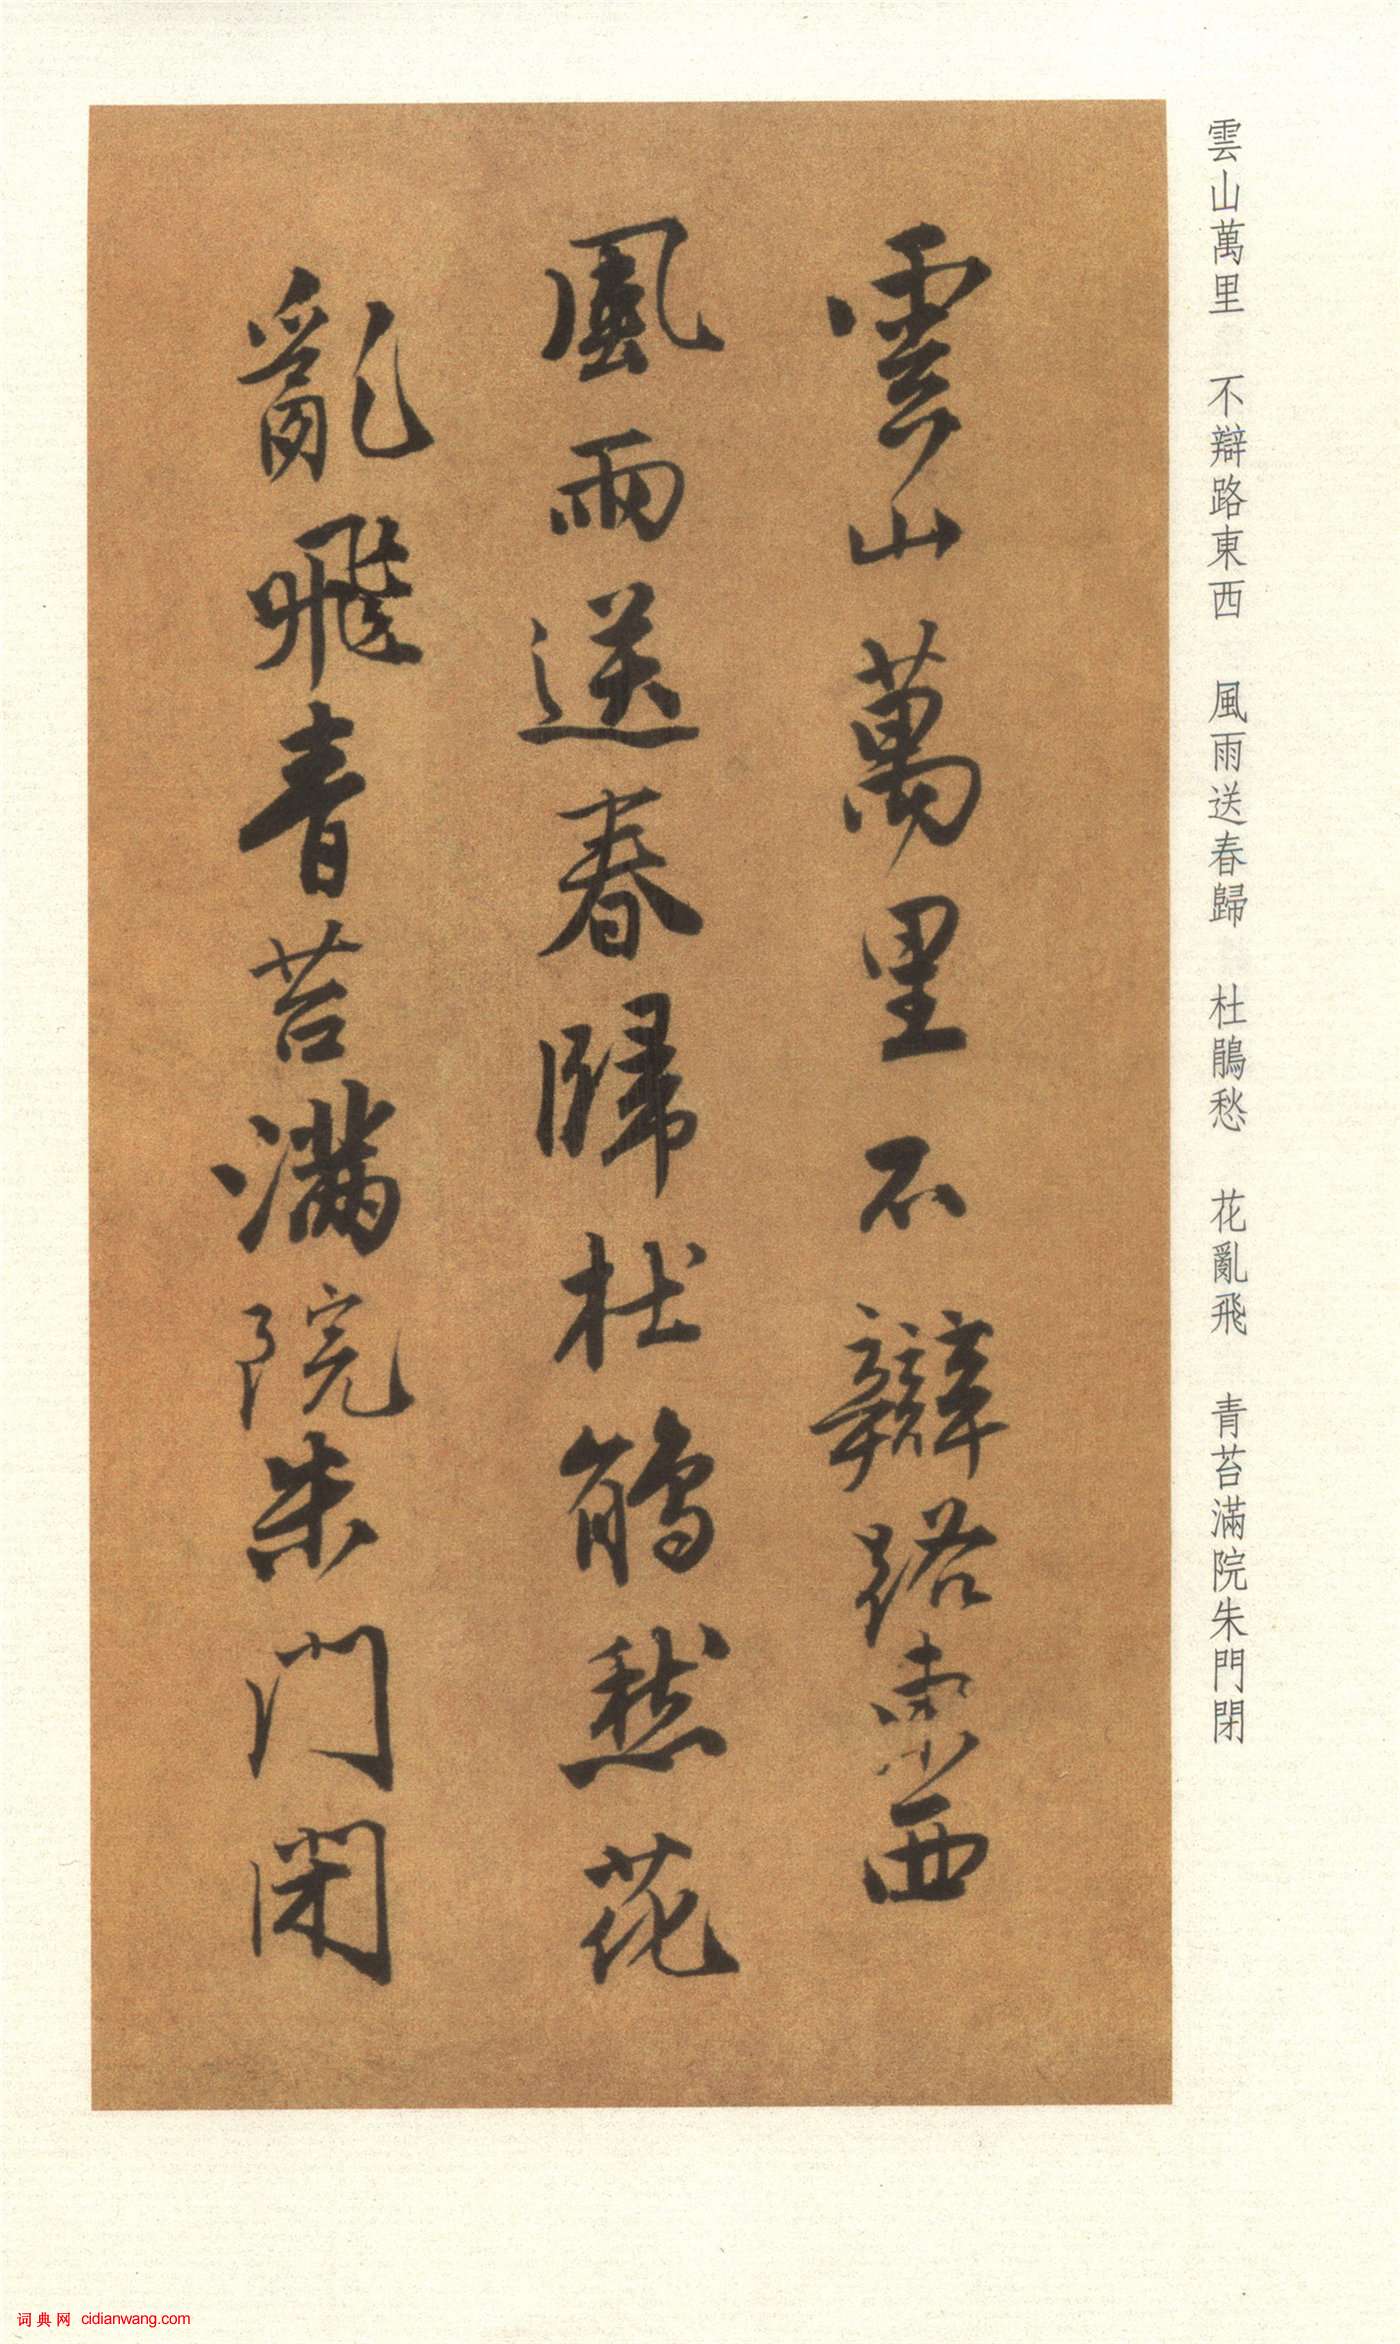 雲山萬里　不辯路東西　風雨送春歸　杜鵑愁　花亂飛　青苔滿院朱門閉
雲山萬里不辯路東西
風雨送春歸杜鵑愁花
亂飛青苔滿院朱門閉
词典网 cidianwang.com